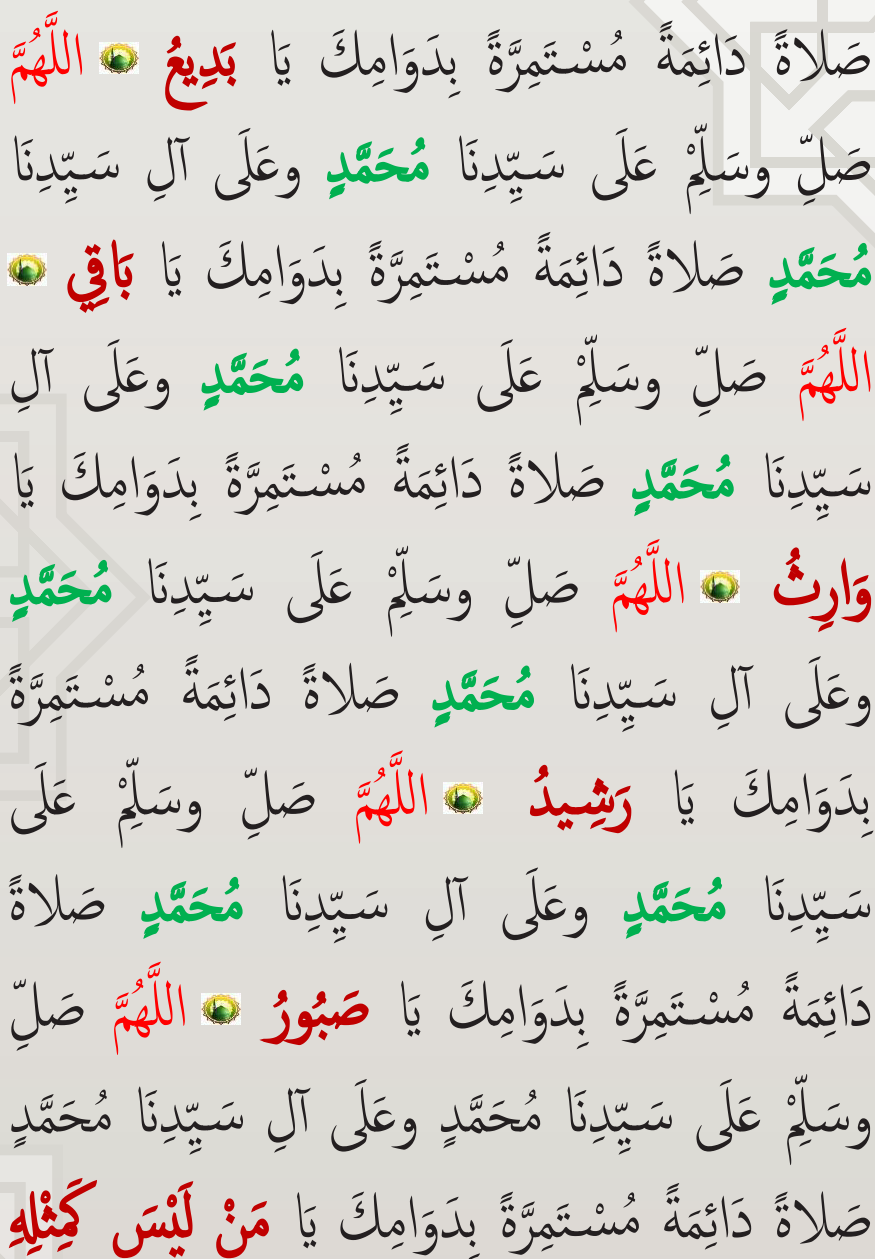 صَلاةً دَائِمَةً مُسْتَمِرَّةً بِدَوَامِكَ يَا بَدِيعُ اللَّهُمَّ
صَلِّ وسَلِّمْ عَلَى سَيِّدِنَا مُحَمَّدٍ وعَلَى آلِ سَيِّدِنَا
مُحَمَّدٍ صَلاةً دَائِمَةً مُسْتَمِرَّةً بِدَوَامِكَ يَا بَاقِي
اللَّهُمَّ صَلِّ وسَلِّمْ عَلَى سَيِّدِنَا مُحَمَّدٍ وعَلَى آلِ
سَيِّدِنَا مُحَمَّدٍ صَلاةً دَائِمَةً مُسْتَمِرَّةً بِدَوَامِكَ يَا
وَارِثُ اللَّهُمَّ صَلِّ وسَلِّمْ عَلَى سَيِّدِنَا مُحَمَّدٍ
وعَلَى آلِ سَيِّدِنَا مُحَمَّدٍ صَلاةً دَائِمَةً مُسْتَمِرَّةً
بِدَوَامِكَ يَا رَشِيدُ اللَّهُمَّ صَلِّ وسَلِّمْ عَلَى
سَيِّدِنَا مُحَمَّدٍ وعَلَى آلِ سَيِّدِنَا مُحَمَّدٍ صَلاةً
دَائِمَةً مُسْتَمِرَّةً بِدَوَامِكَ يَا صَبُورُ اللَّهُمَّ صَلِّ
وسَلِّمْ عَلَى سَيِّدِنَا مُحَمَّدٍ وعَلَى آلِ سَيِّدِنَا مُحَمَّدٍ
صَلاةً دَائِمَةً مُسْتَمِرَّةً بِدَوَامِكَ يَا مَنْ لَيْسَ كَمِثْلِهِ